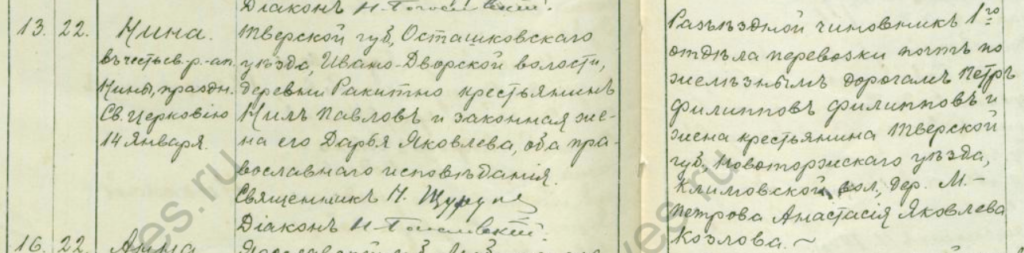 Діаконъ Н.
13. 22. Нина.
въ честь св. р.-ап.
Нины, праздн.
Св. Церковію
14 Января.
Тверской губ, Осташковскаго
уѣзда, Ивано-Дворской волости,
деревни Ракитно крестьянинъ
Нилъ Павловъ и законная же-
на его Дарья Яковлева, оба пра-
вославнаго исповѣданія.
Священникъ Н.
Діаконъ Н.
Разъѣздной чиновникъ 1го
отдѣла перевозки почтъ по
желѣзнымъ дорогамъ Петръ
Филипповъ Филипповъ и
жена крестьянина Тверской
губ, Новоторжскаго уѣзда,
Климовской вол, дер. М.-
Петрова Анастасія Яковлева
Козлова.
16. 22. Анна